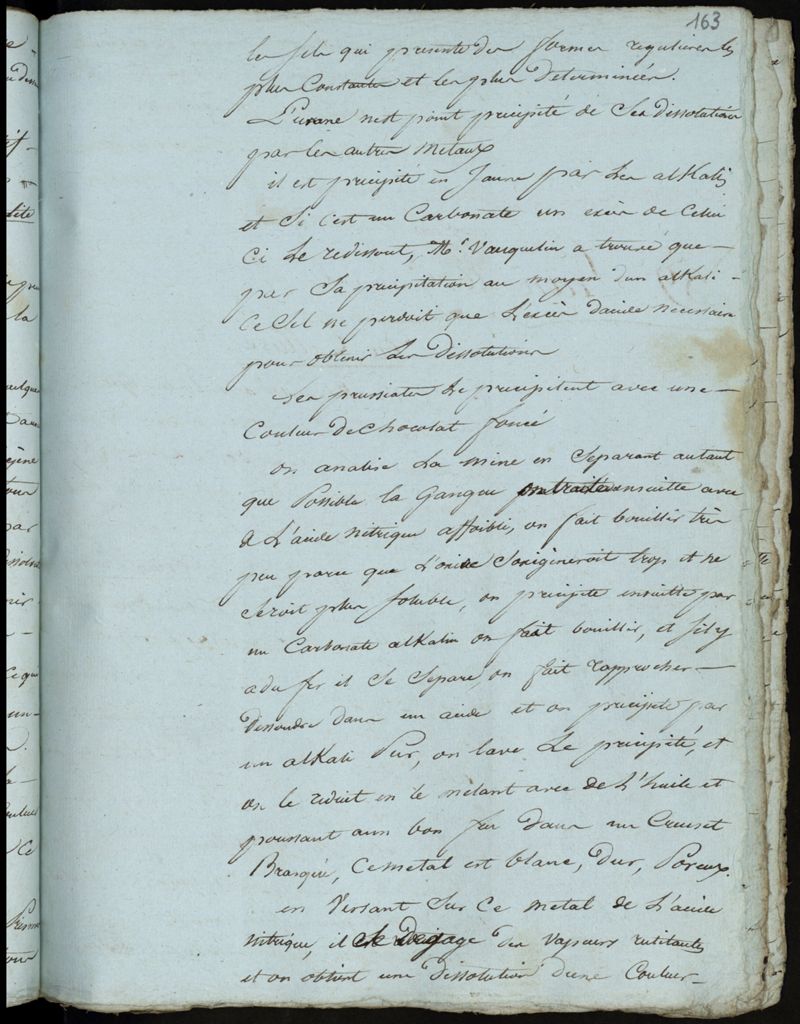 163
les sels qui presente des formes regulieres les
plus Constantes et les plus determinées.
L'urane n'est point precipité de Ses dissolutions
par les autres metaux
il est precipité en Jaune par Les alKalis
et Si c'est un Carbonate un excès de Celui
Ci Le redissout, Mr. Vauquelin a trouvé que
par Sa precipitation au moyen d'un alKali
Ce Sel ne perdoit que L'excès d'acide necessaire
pour obtenir Les Dissolutions
Les prussiates Le precipitent avec une
Couleur de chocolat foncé
on analise La mine en Separant autant
que Possible la Gangue on traite ensuitte avec
de L'acide nitrique affoibli, on fait bouillir très
peu parce que L'oxide S'oxigeneroit trop et ne
Seroit plus Soluble, on precipite ensuitte par
un Carbonate alKalin on fait bouillir, et S'il y
a du fer il Se Separe, on fait rapprocher
dissoudre dans un acide et on precipite par
un alKali Pur, on lave Le precipité, et
on le reduit en le mélant avec de L'huile et
poussant a un bon feu dans un Creuset
Brasqué, Ce metal est blanc, Dur, Poreux.
en Versant Sur Ce metal de L'acide
nitrique, il Se Degage des vapeurs rutilantes
et on obtient une dissolution d'une Couleur